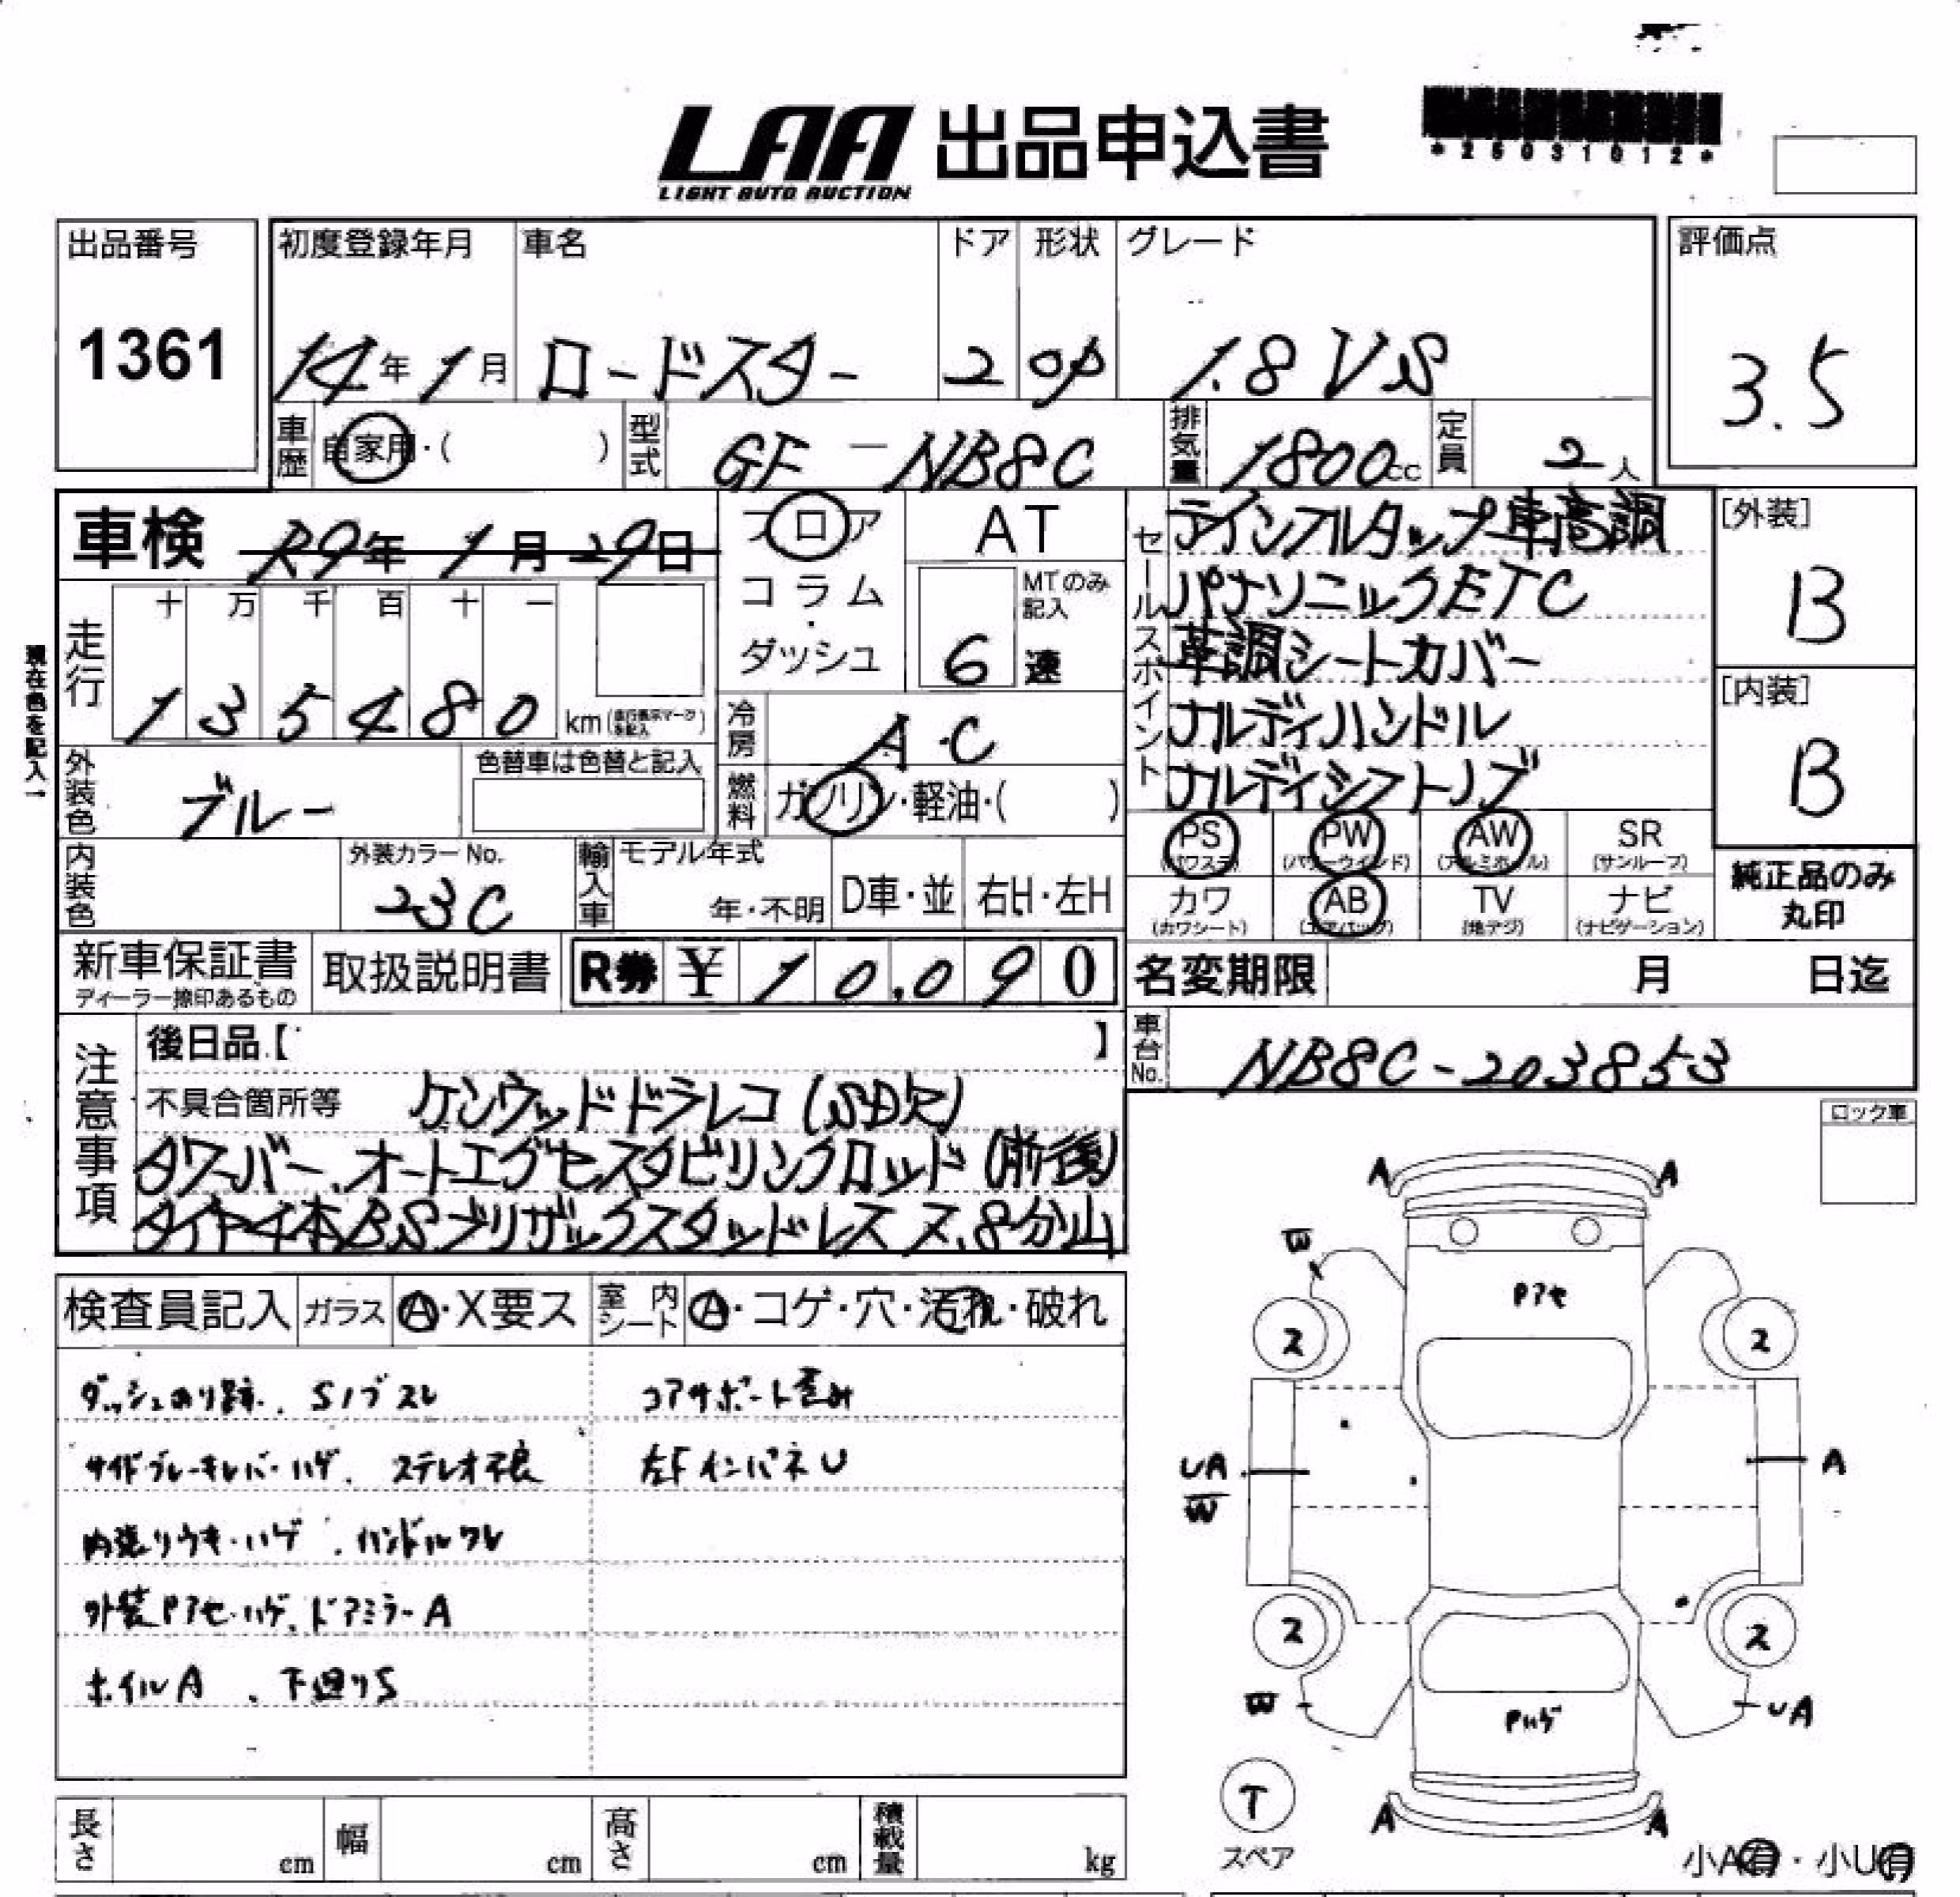 LAA 出品申込書
LIGHT AUTO AUCTION
*25031012*
出品番号
1361
初度登録年月 車名 ドア 形状 グレード
14年1月 ロードスター 2 OP 1.8 VS
評価点
3.5
車歴 自家用・( ) 型式 GF-NB8C 排気量 1800cc 定員 2人
車検 R9年1月29日
フロア
コラム・
ダッシュ
AT
MTのみ記入
6速
走行 十 万 千 百 十 一
1 3 5 4 8 0 km
現在色を記入!
冷房 A・C
燃料 ガソリン・軽油・( )
外装色 ブルー
色替車は色替と記入
内装色
外装カラーNo.
23C
輸入車 モデル年式
年・不明 D車・並 右H・左H
新車保証書
ディーラー捺印あるもの
取扱説明書
R券 ¥ 10,090
セールスポイント
テインフルタップ車高調
パナソニックETC
革調シートカバー
ナルディハンドル
ナルディシフトノブ
[外装]
B
[内装]
B
PS (パワステ) PW (パワーウインド) AW (アルミホイル) SR (サンルーフ)
カワ (カワシート) AB (エアバッグ) TV (地デジ) ナビ (ナビゲーション)
純正品のみ
丸印
名変期限 月 日迄
車台No. NB8C-203853
注意事項
後日品【 】
不具合箇所等 ケンウッドドラレコ(SD欠)
タワーバー、オートエグゼスタビリンクロッド(前後)
タイヤ4本BSブリザックスタッドレス ヌ、8分山
検査員記入 ガラス A・X要ス 室内シート A・コゲ・穴・汚れ・破れ
ダッシュのり跡、Sノブスレ
サイドブレーキレバーハゲ、ステレオ不良
内張りウキ・ハゲ、ハンドルスレ
外装Pアセ・ハゲ、ドアミラーA
ホイルA、下廻りS
コアサポート歪み
左FインパネU
ロック車
A A
W
Pアセ
2 2
UA
W
A
2 2
W
Pハゲ
UA
T
スペア
A A
小A有・小U有
長さ cm 幅 cm 高さ cm 積載量 kg